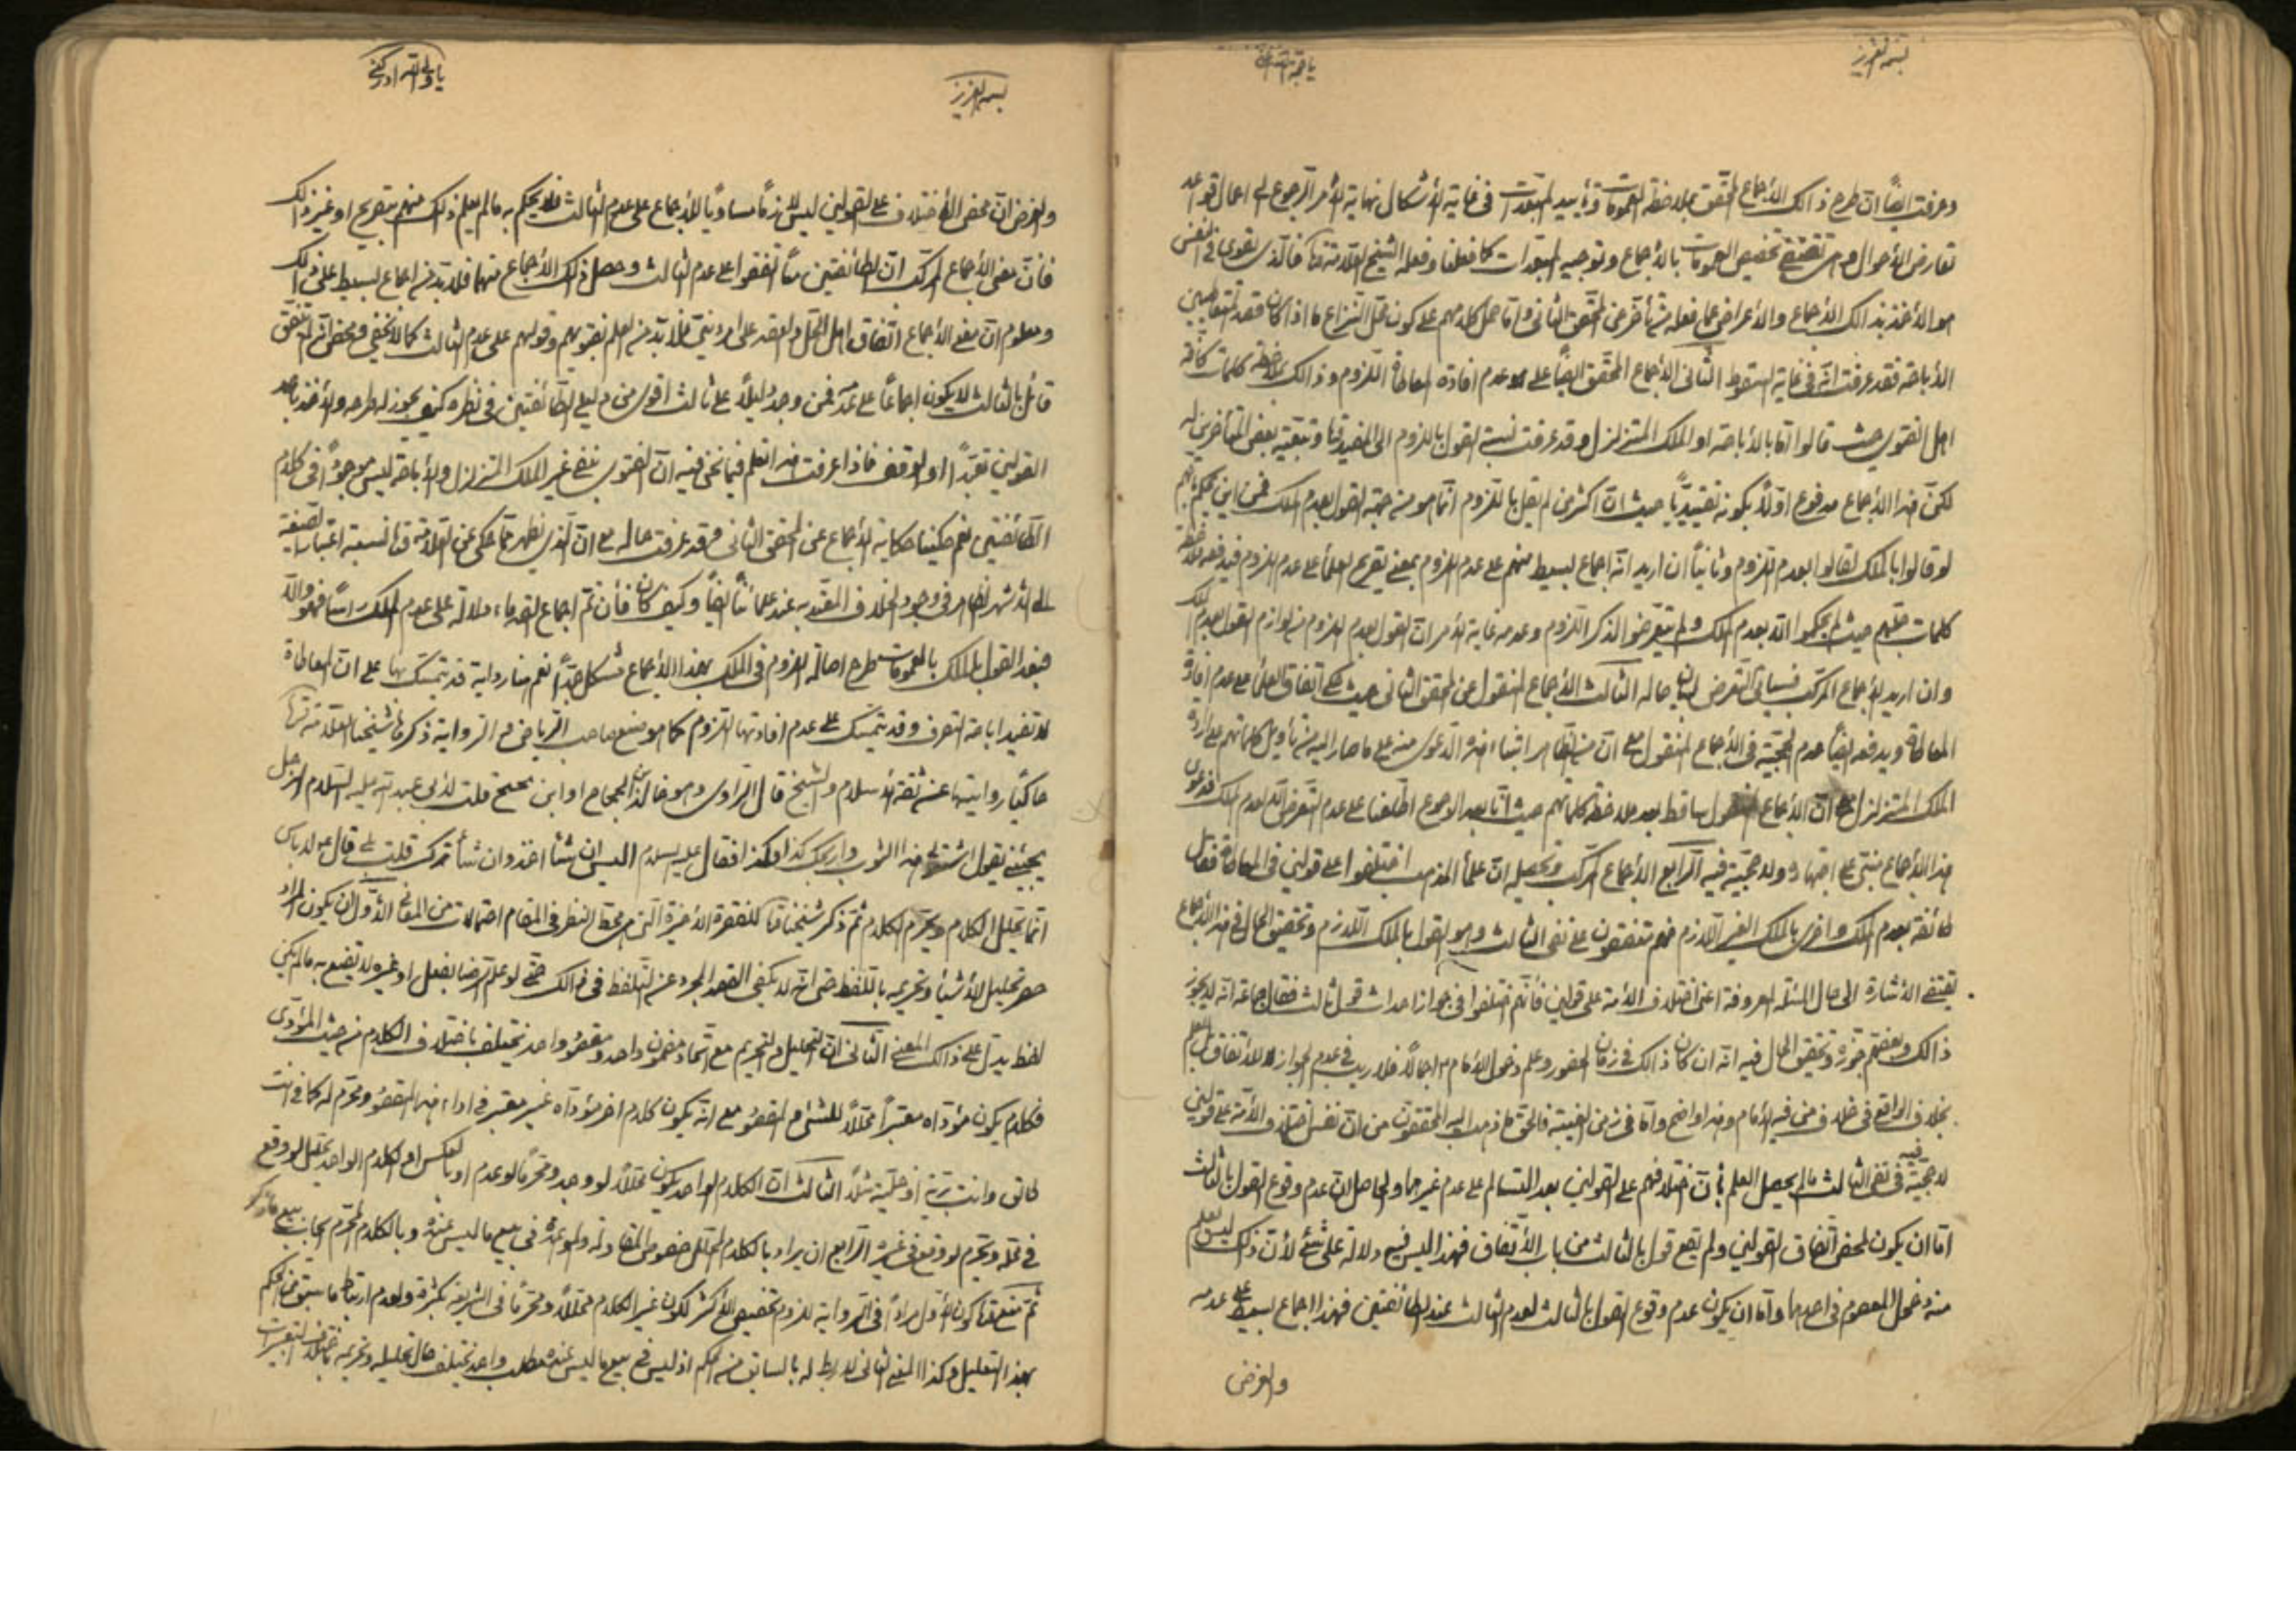 بسمه العزیز
وعرفت ایضاً ان طرح ذالک الاجماع المحقق بملاحظة العمومات وتأیید المبعدات فی غایة الاشکال نهایة الامر الرجوع الی اعمال قواعد
تعارض الاحوال وهی تقتضی تخصیص العمومات بالاجماع وتوجیه المبعدات کما فعلنا وفعله الشیخ العلامة قدّه فالذی یقوی فی النفس
هو الاخذ بذالک الاجماع والاعراض عما فعله من تأخر عن المحقق الثانی واما حمل کلامهم علی کون محل النزاع ما اذا کان قصد المتعاطیین
الاباحة فقد عرفت انه فی غایة السقوط الثانی الاجماع المحقق ایضاً علی عدم افادة المعاطاة اللزوم وذالک بملاحظة کلمات کافة
اهل الفتوی حیث قالوا اما بالاباحة او الملک المتزلزل وقد عرفت نسبة القول باللزوم الی المفید قدّه وتبعیة بعض المتأخرین له
لکن هذا الاجماع مدفوع اولاً بکونه تقییدیاً حیث ان اکثر من لم یقل باللزوم انما هو من جهة القول بعدم الملک فمن این یحکم بانهم
لو قالوا بالملک لقالوا بعدم اللزوم وثانیاً ان ارید انه اجماع بسیط منهم علی عدم اللزوم بمعنی تصریح العلماء علی عدم اللزوم فیدفعه ملاحظة
کلمات جلهم حیث لم یحکموا الا بعدم الملک ولم یتعرضوا لذکر اللزوم وعدمه غایة الامر ان القول بعدم اللزوم من لوازم القول بعدم الملک
وان ارید الاجماع المرکب فسیأتی التعرض لبیان حاله الثالث الاجماع المنقول عن المحقق الثانی حیث حکی اتفاق العلماء علی عدم افادة
المعاطاة ویدفعه ایضاً عدم الحجیة فی الاجماع المنقول مع ان من الظاهر ابتناء هذه الدعوی منه علی ما صار الیه من تأویل کلماتهم علی ارادة
الملک المتزلزل مع ان الاجماع المنقول ساقط بعد ملاحظة کلماتهم حیث انا بعد الرجوع اطلعنا علی عدم التعرض الا لعدم الملک فدعوی
هذا الاجماع مبتنی علی اجتهاد ولا حجیة فیه الرابع الاجماع المرکب وتحصیله ان علماء المذهب اختلفوا علی قولین فی المعاطاة فقال
طائفة بعدم الملک واخری بالملک الغیر اللازم فهم متفقون علی نفی الثالث وهو القول بالملک اللازم وتحقیق الحال فی هذا الاجماع
یقتضی الاشارة الی حال المسئلة المعروفة اعنی اختلاف الامة علی قولین فانهم اختلفوا فی جواز احداث قول ثالث فقال جماعة انه لا یجوز
ذالک وبعضهم جوزه وتحقیق الحال فیه انه ان کان ذالک فی زمان الحضور وعلم دخول الامام ع اجمالاً فلا ریب فی عدم الجواز للاتفاق
بخلاف الواقع فی خلاف من فیه الامام وهذا واضح واما فی زمن الغیبة فالحق ما ذهب الیه المحققون من ان نفس اختلاف الامة علی قولین
لا حجیة فیه فی نفی الثالث ما لم یحصل العلم بان اختلافهم علی القولین بعد التسالم علی عدم غیرهما والحاصل ان عدم وقوع القول بالثالث
اما ان یکون لمحض اتفاق القولین ولم یقع قول بالثالث من باب الاتفاق فهذا لیس فیه دلالة علی شیء لأن ذلک لیس یعلم
منه دخول المعصوم فی احدهما واما ان یکون عدم وقوع القول بالثالث لعدم الثالث عند الطائفتین فهذا اجماع بسیط علی عدمه
والغرض
بسمه العزیز
یا ولی الله ادرکنی
والغرض ان محض الاختلاف علی القولین لیس لازماً مساویاً للاجماع علی عدم الثالث فلا یحکم به ما لم یعلم ذلک منهم بتصریح او غیر ذالک
فان معنی الاجماع المرکب ان الطائفتین منا اتفقوا علی عدم الثالث وحصل ذلک الاجماع منهما فلا بد من اجماع بسیط علی ذلک
ومعلوم ان معنی الاجماع اتفاق اهل الحل والعقد علی امر دینی فلا بد من العلم بفتویهم وقولهم علی عدم الثالث کما لا یخفی ومحض انه لم یتفق
قائل بالثالث لا یکون اجماعاً علی عدمه فمن وجد دلیلاً علی ثالث اقوی من دلیلی الطائفتین فی نظره کیف یجوز له طرحه والاخذ باحد
القولین تعبداً او الوقف فاذا عرفت هذا فاعلم فیما نحن فیه ان الفتوی بنفی غیر الملک المتزلزل والاباحة لیس موجوداً فی کلام
الطائفتین نعم حکینا حکایة الاجماع عن المحقق الثانی وقد عرفت حاله مع ان الذی یظهر مما حکی عن العلامة قدّه نسبة اعتبار الصیغة
الی الاشهر الظاهر فی وجود الخلاف المعتد به عند علمائنا ایضاً وکیف کان فان تم اجماع القدماء دلالة علی عدم الملک رأساً فهو والا
فبعد القول بالملک بالعمومات طرح اصالة اللزوم فی الملک بهذا الاجماع مشکل جداً نعم هنا روایة قد یتمسک بها علی ان المعاطاة
لا تفید اباحة التصرف وقد یتمسک علی عدم افادتها اللزوم کما هو صنع صاحب الریاض ره الروایة ذکرها شیخنا العلامة قدّه
حاکیاً روایتها عن ثقة الاسلام والشیخ قال الراوی وهو خالد بن الحجاج او ابن نجیح قلت لأبی عبد الله علیه السلام الرجل
یجیئنی یقول اشتر هذا الثوب واربحک کذا وکذا فقال علیه السلام الیس ان شاء اخذ وان شاء ترک قلت بلی قال ع لا باس
انما یحلل الکلام ویحرم الکلام ثم ذکر شیخنا قدّه للفقرة الاخیرة التی هی محط النظر فی المقام احتمالات من المعانی الاول ان یکون المراد
حصر تحلیل الاشیاء وتحریمه باللفظ حتی انه لا یکفی القصد المجرد عن التلفظ فی ذالک حتی لو علم الرضا بفعل او غیره لا ینفع به ما لم یکن
لفظ یدل علی ذالک المعنی الثانی ان التحلیل والتحریم مع اتحاد مضمون واحد ومقصود واحد یختلف باختلاف الکلام من حیث المؤدی
فکلام یکون مؤداه معتبراً محللاً للشیء المقصود مع انه یکون کلام اخر مؤداه غیر معتبر فی اداء هذا المقصود ومحرم له کما فی انت
طالق وانت بریة او خلیة مثلاً الثالث ان الکلام الواحد یکون محللاً لو وجد ومحرماً لو عدم او بالعکس او الکلام الواحد یحلل لو وقع
فی محله ویحرم لو وقع فی غیره الرابع ان یراد بالکلام المحلل خصوص المقاولة والمواعدة فی بیع ما لیس عنده وبالکلام المحرم ایجاب بیع
ثم منع قدّه کون الاول مراداً فی الروایة للزوم تخصیص الاکثر لکون غیر الکلام محللاً ومحرماً فی الشریعة بکثرة ولعدم ارتباط ما سبق من الحکم
بهذا التعلیل وکذا المعنی الثانی لا ربط له بالسابق من الحکم اذ لیس فی بیع ما لیس عنده مطلب واحد یختلف حال تحلیله وتحریمه باختلاف التعبیرات